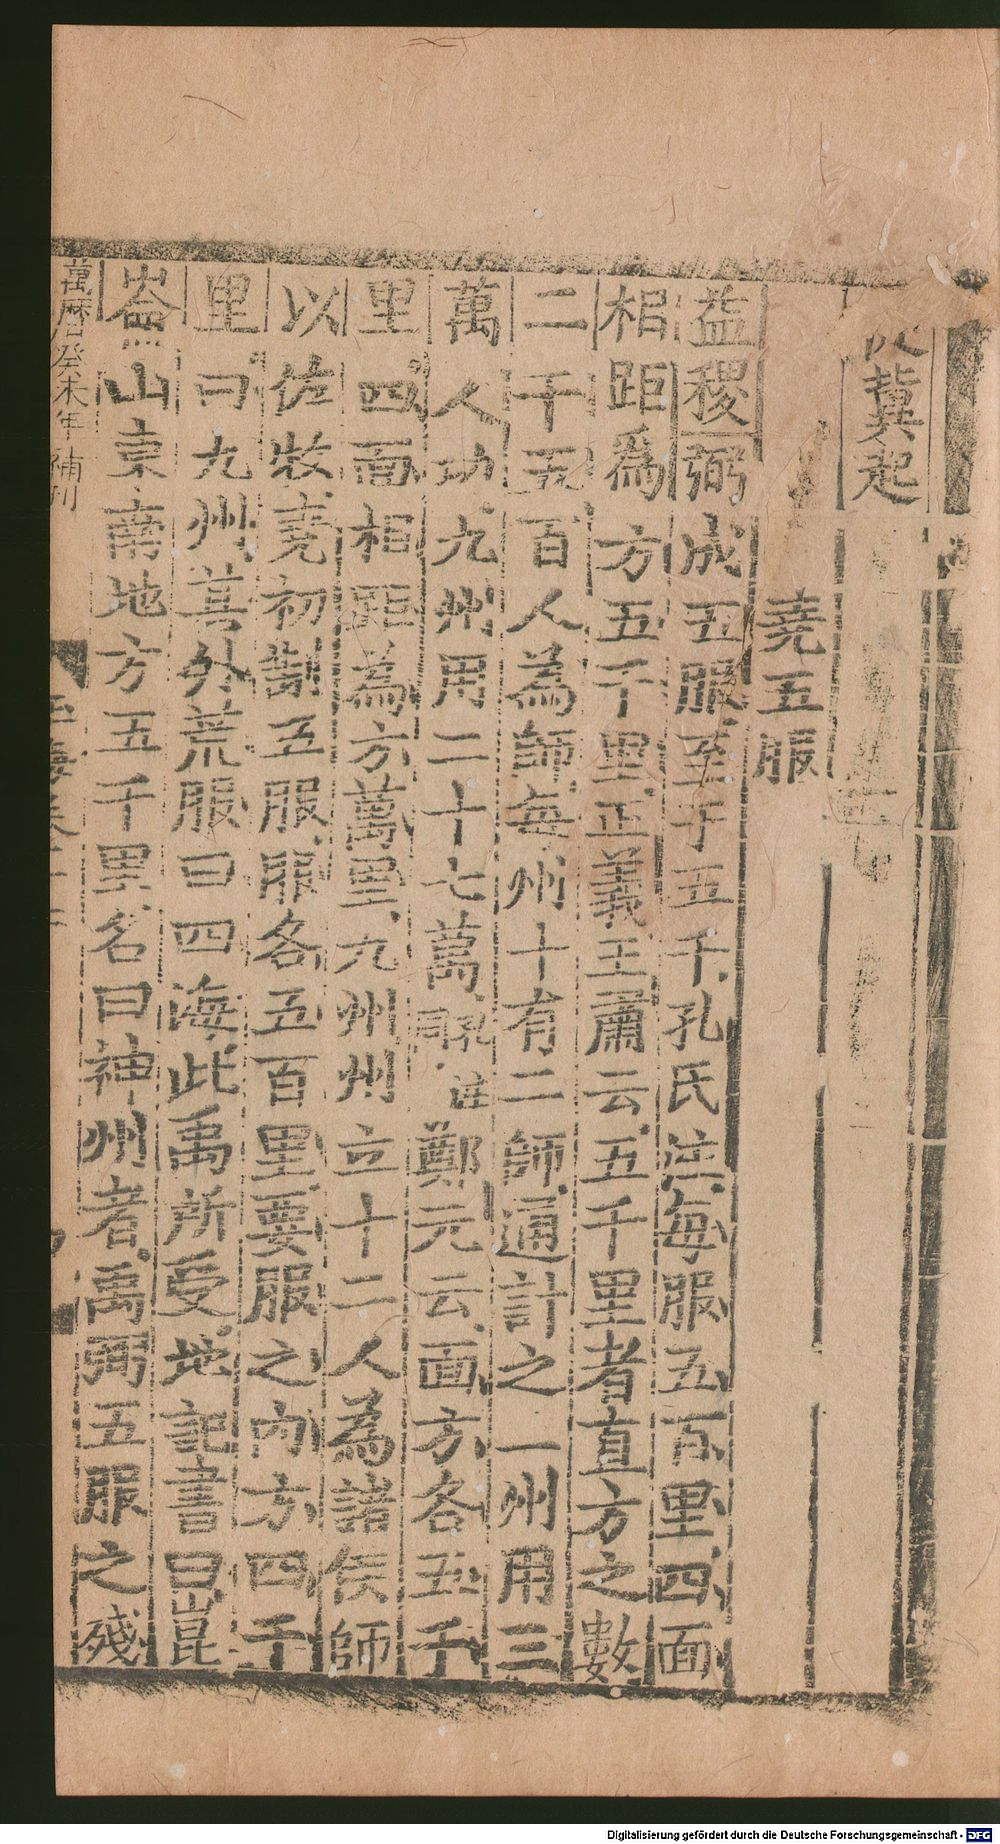 冀起
堯五服
益稷弼成五服至于五千孔氏注每服五百里四面
相距為方五千里正義王肅云五千里者直方之數
二千五百人為師每州十有二師通計之一州用三
萬人功九州用二十七萬同孔注鄭元云面方各五千
里四面相距為方萬里九州州立十二人為諸侯師
以佐牧堯初制五服服各五百里要服之内方四千
里曰九州其外荒服曰四海此禹所受地記書曰崑
崙山東南地方五千里名曰神州者禹弼五服之殘
萬曆癸未年補刊
Digitalisierung gefördert durch die Deutsche Forschungsgemeinschaft - DFG